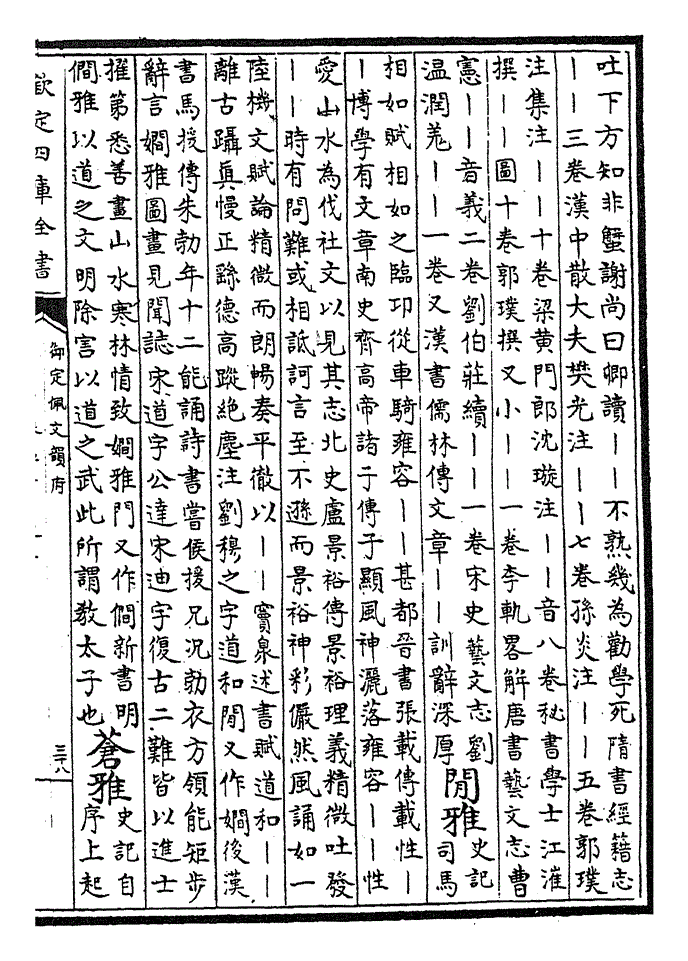 吐下方知非蟹謝尚曰卿讀――不熟幾為勸學死隋書經籍志
――三卷漢中散大夫樊光注――七卷孫炎注――五卷郭璞
注集注――十卷梁黄門郎沈璇注――音八卷秘書學士江漼
撰――圖十卷郭璞撰又小――一卷李軌畧解唐書藝文志曹
憲――音義二卷劉伯莊續――一卷宋史藝文志劉
温潤羗――一卷又漢書儒林傳文章――訓辭深厚
閒雅
史記
司馬
相如賦相如之臨邛從車騎雍容――甚都晉書張載傳載性―
―博學有文章南史齊高帝諸子傳子顯風神灑落雍容――性
愛山水為伐社文以見其志北史盧景裕傳景裕理義精微吐發
――時有問難或相詆訶言至不遜而景裕神彩儼然風誦如一
陸機文賦論精微而朗暢奏平徹以――竇泉述書賦道和――
離古躡真慢正繇德高蹤絶塵注劉穆之字道和閒又作嫺後漢
書馬援傳朱勃年十二能誦詩書嘗候援兄况勃衣方領能矩步
辭言嫺雅圖畫見聞誌宋道字公達宋迪字復古二難皆以進士
擢第悉善畫山水寒林情致嫺雅門又作僩新書明
僩雅以道之文明除害以道之武此所謂教太子也
蒼雅
史記自
序上起
欽定四庫全書
御定佩文韻府
三十八